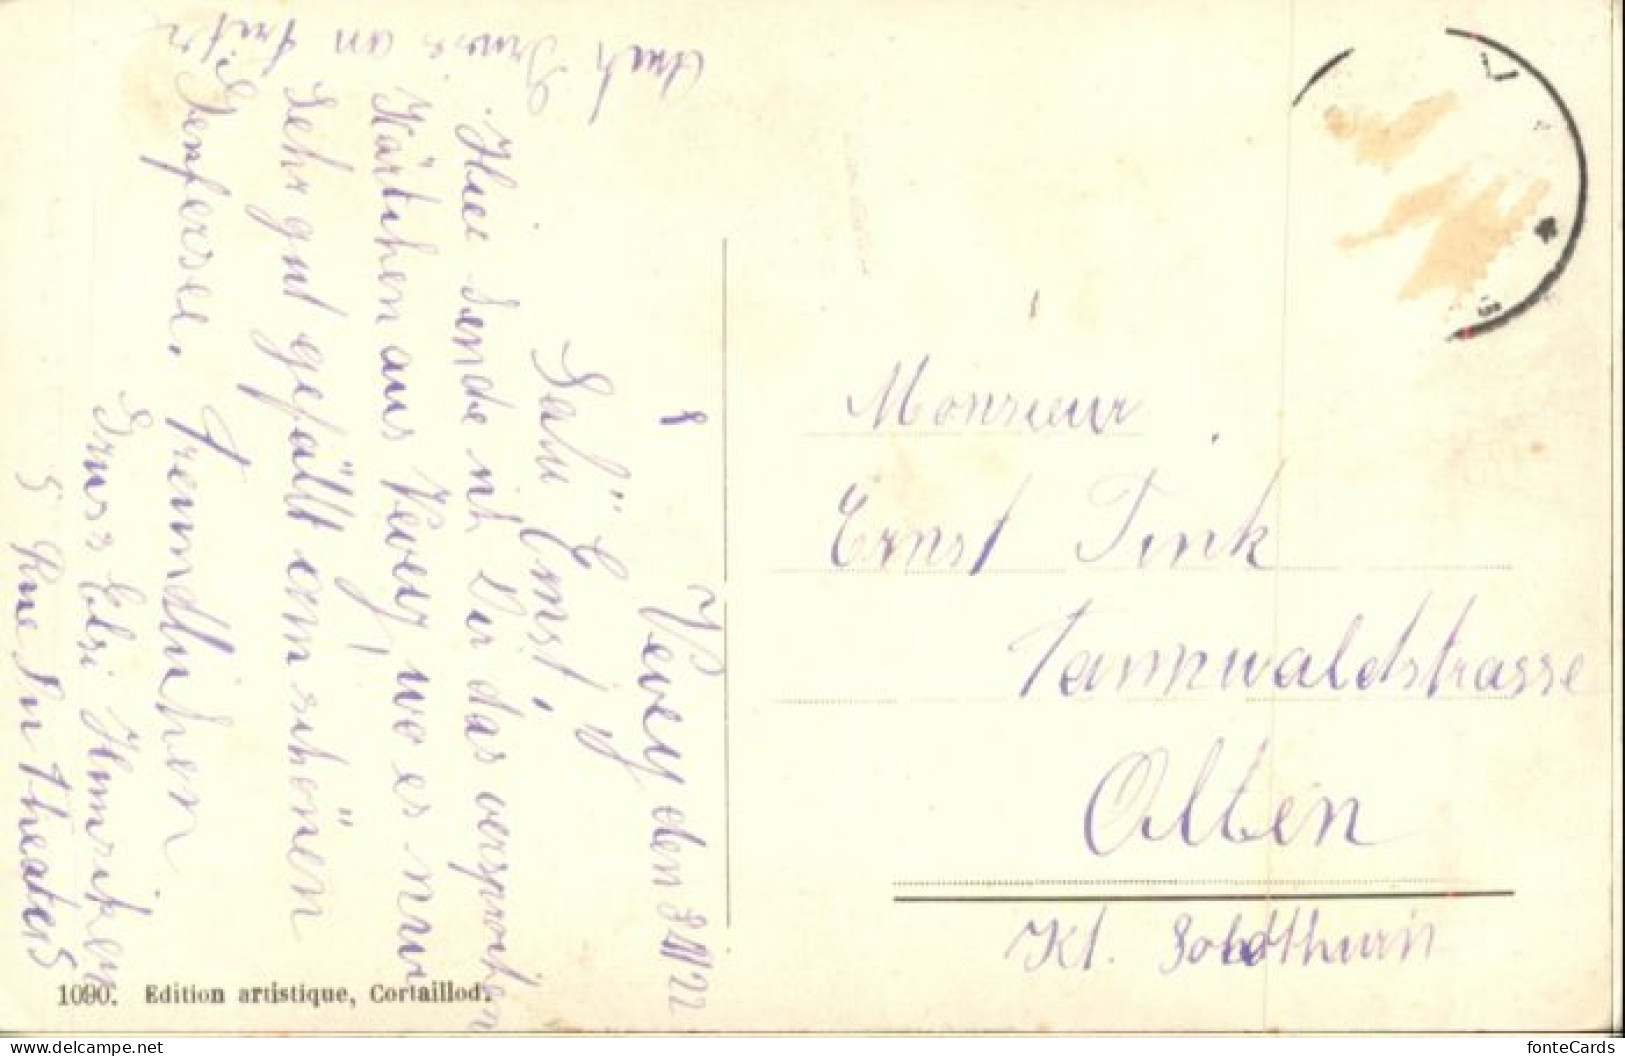 Vevey den 3. 22
Salü Ernst,
Hier sende ich Dir das versprochen
Kärtchen aus Vevey, wo es mir
sehr gut gefällt am schönen
Genfersee. Freundlichen
Gruss Elsi
5 Rue du théâtre 5
auch Gruss an
Monsieur
Ernst Fink
Tannwaldstrasse
Olten
Kt. Solothurn
1090. Edition artistique, Cortaillod.
fonteCards
www.delcampe.net